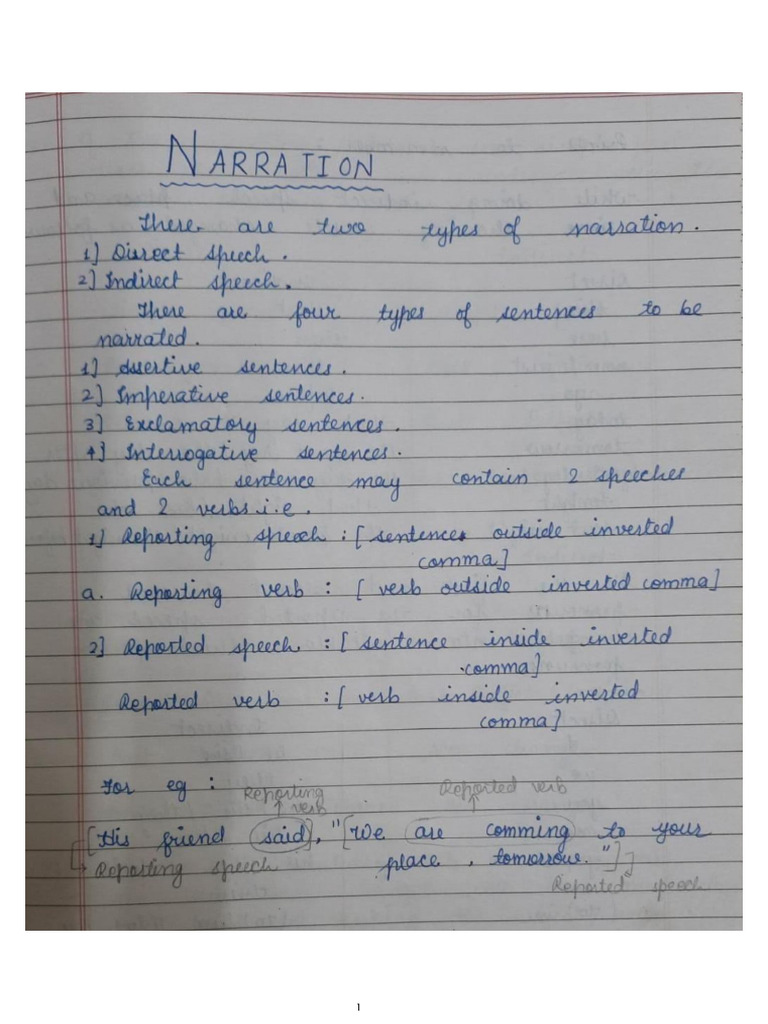 NARRATION
There are two types of narration.
1] Direct speech.
2] Indirect speech.
There are four types of sentences to be
narrated.
1] Assertive sentences.
2] Imperative sentences.
3] Exclamatory sentences.
4] Interrogative sentences.
Each sentence may contain 2 speeches
and 2 verbs i.e.
1] Reporting speech : [ sentence outside inverted
comma]
a. Reporting verb : [ verb outside inverted comma]
2] Reported speech : [ sentence inside inverted
comma]
Reported verb : [ verb inside inverted
comma]
For eg :
Reporting verb
Reported verb
[His friend said], "[We are comming to your
place, tomorrow."]
Reporting speech
Reported speech
1